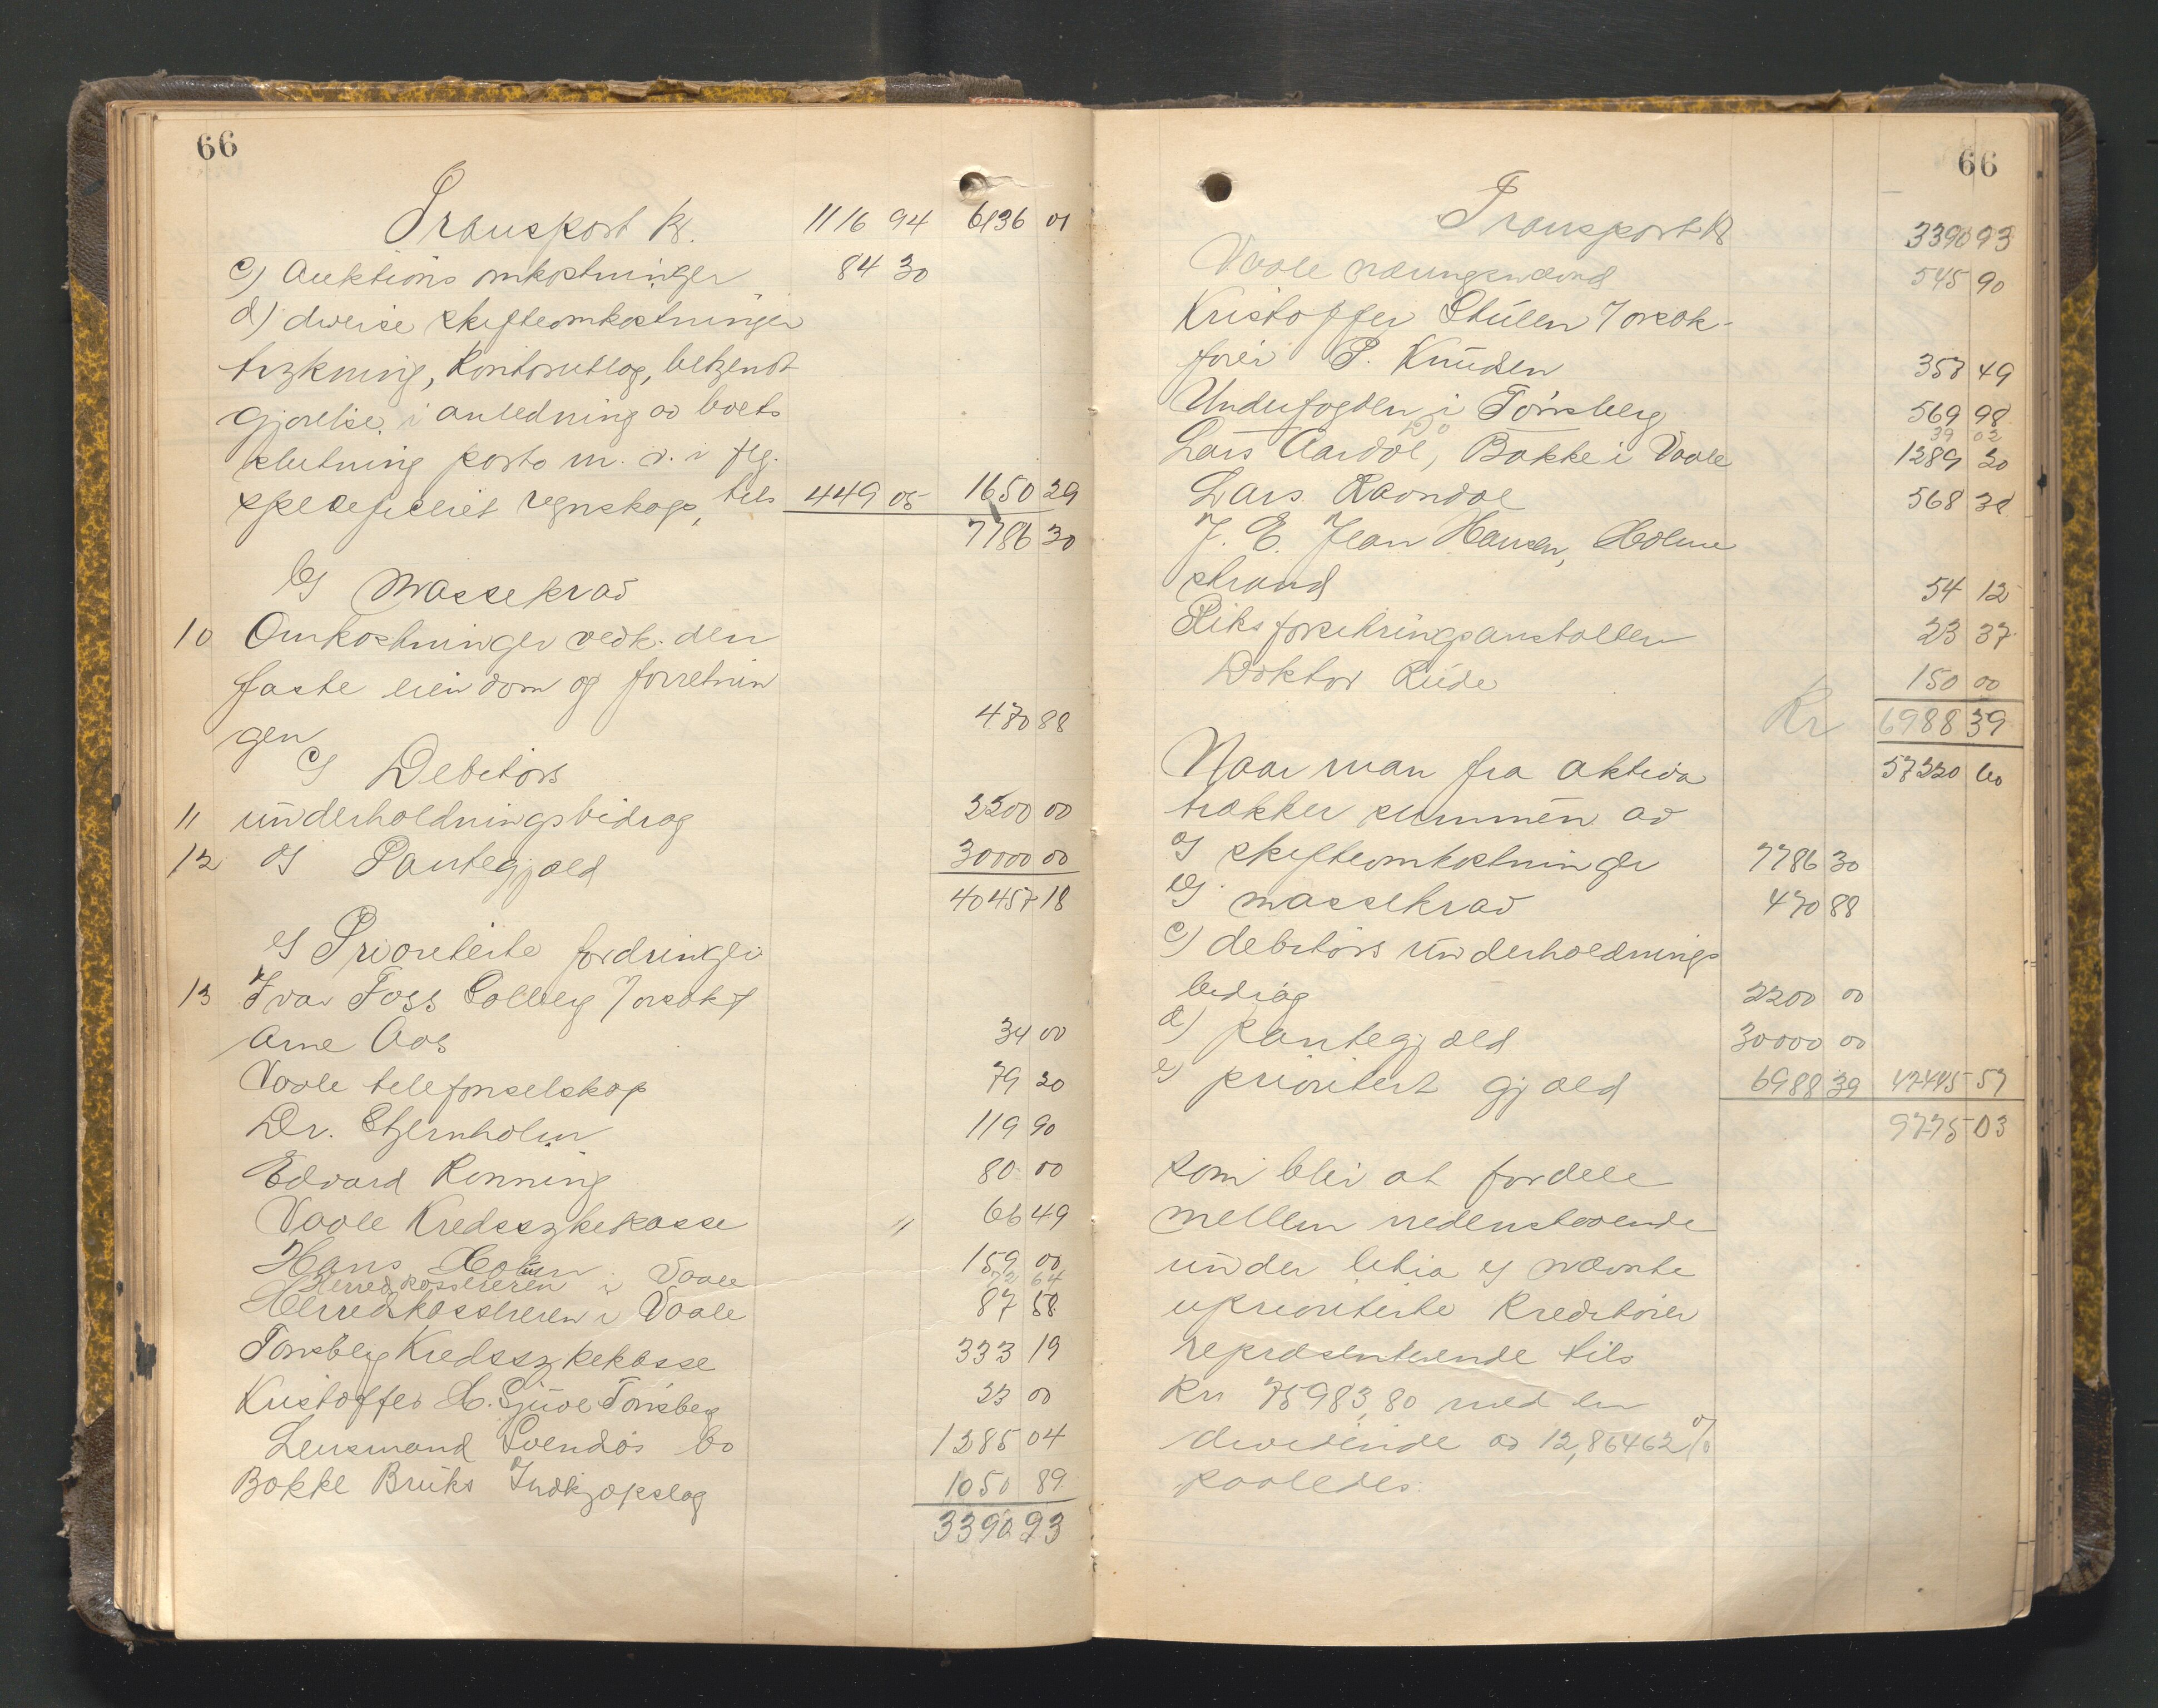 66
Transport Kr. 1116 94 6136 01
c) Auktions omkostninger 84 30
d) diverse skifteomkostninger
trykning, Kontorutlæg, bekjendt
gjørelse i anledning av boets
slutning porto m. v. i flg.
specificeret regnskap, tils 449 05 1650 29
7786 30
b) Massekrav
10 Omkostninger vedk. den
faste eiendom og forretnin
gen 470 88
c) Debitors
11 underholdningsbidrag 2200 00
12 d) Pantegjæld 30000 00
40457 18
e) Prioriterte fordringer
13 Ivar Foss Solberg 7 orsokf
Arne Aas 34 00
Vaale telefonselskap 79 20
Dr. Stjernholm 119 90
Edvard Rønning 80 00
Vaale Kredssykekasse " 66 49
Hans Holm 159 00
Herredskassereren i Vaale 72 64
Herredskassereren i Vaale 87 58
Tønsberg Kredssykekasse 333 19
Kristoffer H. Gjúve Tønsberg 23 00
Lensmand Svendøs bo 1285 04
Bakke Bruks Indkjøpslag 1050 89
3390 93
66
Transport Kr 3390 93
Vaale nærungsnævnd 545 90
Kristoffer Stulen 7 orsok-
fører P. Knudsen 353 49
Underfogden i Tønsberg 569 98
Do 39 02
Lars Aardal, Bakke i Vaale 1289 20
Lars Ravndal 568 38
J. E. Jean Hansen, Holme
strand 54 12
Riksforsikringsanstalten 23 37
Doktor Rude 150 00
Kr 6988 39
Naar man fra aktiva 57220 60
trækker summen av
a) skifteomkostninger 7786 30
b) massekrav 470 88
c) debitors underholdnings
bidrag 2200 00
d) pantegjæld 30000 00
e) prioritert gjæld 6988 39 47445 57
9775 03
som blir at fordele
mellem nedenstaaende
under litra e) nævnte
uprioriterte kreditorer
repræsenterende tils
Kr 75983,80 med en
dividende av 12,86462%
saaledes.